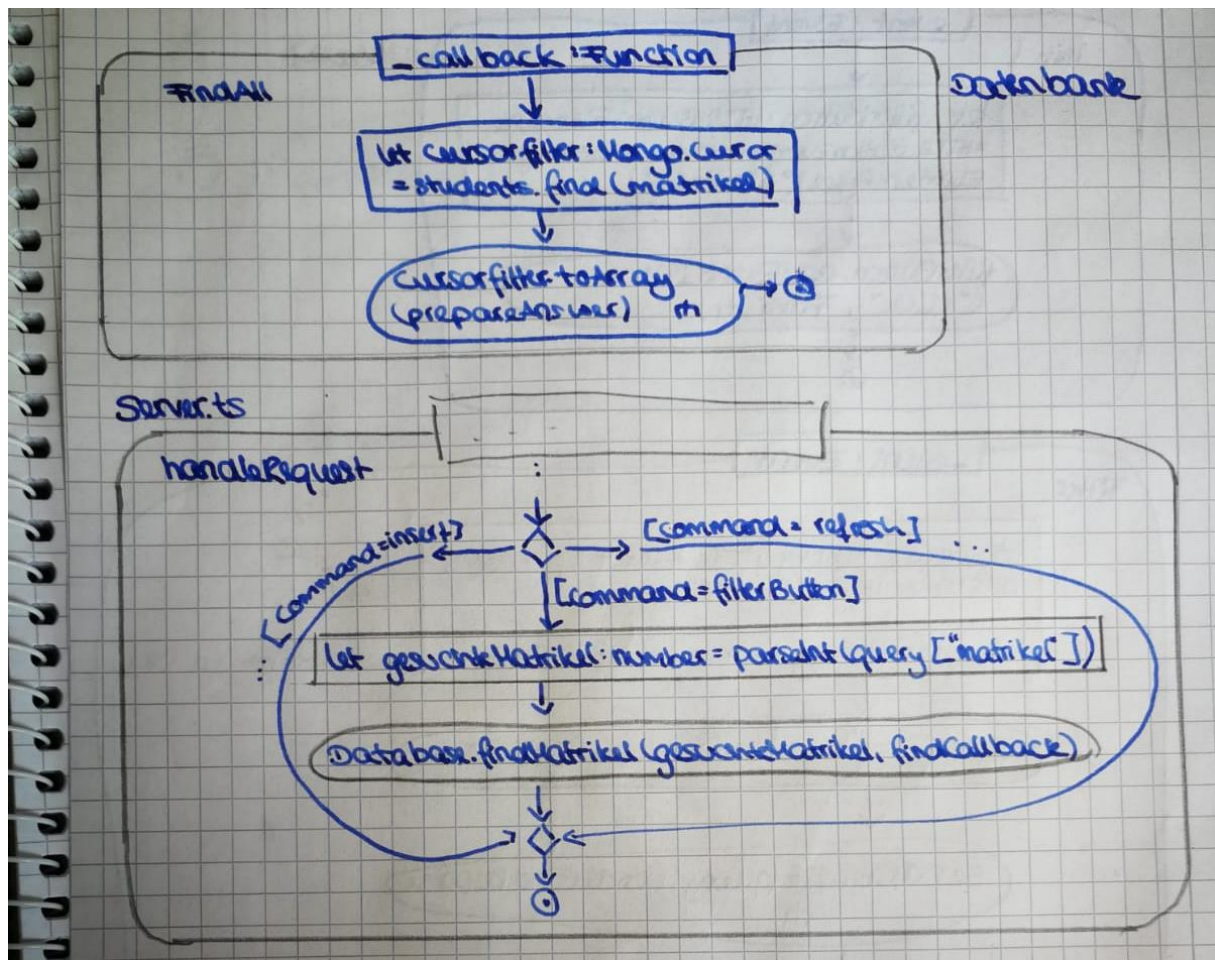 _callback : Function
FindAll
Datenbank
let cursorfilter : Mongo.Cursor
= students.find (matrikel)
Cursorfilter.toArray
(prepareAnswer)
Server.ts
handleRequest
[command=insert]
[command = refresh] ...
[command=filterButton]
let gesuchteMatrikel: number = parseInt (query ["matrikel"])
Database.findMatrikel (gesuchteMatrikel, findCallback)